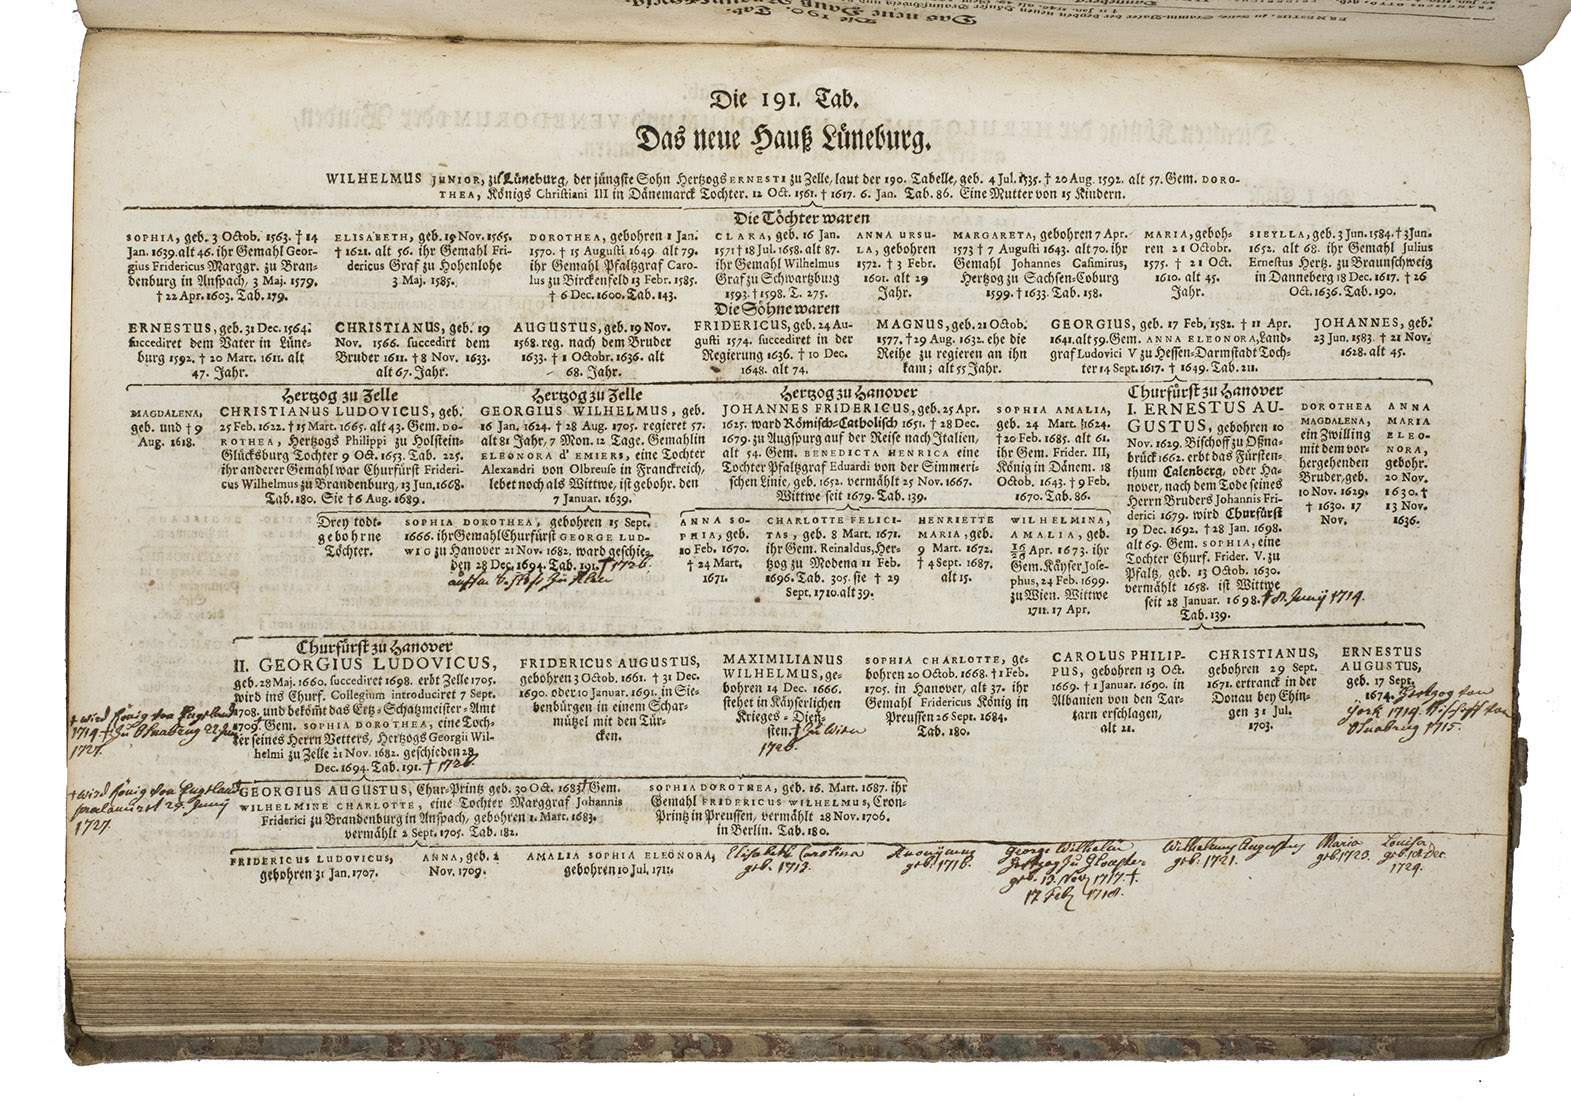 Die 190. Tab.
Das neue Hauß
Die 191. Tab.
Das neue Hauß Lüneburg.
WILHELMUS JUNIOR, zu Lüneburg, der jüngste Sohn Hertzogs ERNESTI zu Zelle, laut der 190. Tabelle, geb. 4 Jul. 1535. † 20 Aug. 1592. alt 57. Gem. DORO-
THEA, Königs Christiani III in Dänemarck Tochter. 12 Oct. 1561. † 1617. 6. Jan. Tab. 86. Eine Mutter von 15 Kindern.
Die Töchter waren
SOPHIA, geb. 3 Octob. 1563. † 14
Jan. 1639. alt 46. ihr Gemahl Geor-
gius Fridericus Marggr. zu Bran-
denburg in Anspach, 3 Maj. 1579.
† 22 Apr. 1603. Tab. 179.
ELISABETH, geb. 15 Nov. 1565.
† 1621. alt 56. ihr Gemahl Fri-
dericus Graf zu Hohenlohe
3 Maj. 1585.
DOROTHEA, gebohren 1 Jan.
1570. † 15 Augusti 1649. alt 79.
ihr Gemahl Pfaltzgraf Caro-
lus zu Birckenfeld 13 Febr. 1585.
† 6 Dec. 1600. Tab. 143.
CLARA, geb. 16 Jan.
1571 † 18 Jul. 1658. alt 87.
ihr Gemahl Wilhelmus
Graf zu Schwartzburg
1593. † 1598. T. 275.
ANNA URSU-
LA, gebohren
1572. † 3 Febr.
1601. alt 29
Jahr.
MARGARETA, gebohren 7 Apr.
1573 † 7 Augusti 1643. alt 70. ihr
Gemahl Johannes Casimirus,
Hertzog zu Sachsen-Coburg
1599. † 1633. Tab. 158.
MARIA, geboh-
ren 21 Octobr.
1575. † 21 Oct.
1610. alt 45.
Jahr.
SIBYLLA, geb. 3 Jun. 1584. † 3 Jun.
1652. alt 68. ihr Gemahl Julius
Ernestus Hertz. zu Braunschweig
in Danneberg 18 Dec. 1617. † 26
Oct. 1636. Tab. 190.
Die Söhne waren
ERNESTUS, geb. 31 Dec. 1564.
succediret dem Vater in Lüne-
burg 1592. † 20 Mart. 1611. alt
47. Jahr.
CHRISTIANUS, geb. 19
Nov. 1566. succedirt dem
Bruder 1611. † 8 Nov. 1633.
alt 67. Jahr.
AUGUSTUS, geb. 19 Nov.
1568. reg. nach dem Bruder
1633. † 1 Octobr. 1636. alt
68. Jahr.
FRIDERICUS, geb. 24 Au-
gusti 1574. succediret in der
Regierung 1636. † 10 Dec.
1648. alt 74.
MAGNUS, geb. 21 Octob.
1577. † 29 Aug. 1632. ehe die
Reihe zu regieren an ihn
kam; alt 55 Jahr.
GEORGIUS, geb. 17 Feb, 1582. † 11 Apr.
1641. alt 59. Gem. ANNA ELEONORA, Land-
graf Ludovici V zu Hessen-Darmstadt Toch-
ter 14 Sept. 1617. † 1649. Tab. 211.
JOHANNES, geb.
23 Jun. 1583. † 21 Nov.
1628. alt 45.
MAGDALENA,
geb. und † 9
Aug. 1618.
Hertzog zu Zelle
CHRISTIANUS LUDOVICUS, geb.
25 Feb. 1622. † 15 Mart. 1665. alt 43. Gem. DO-
ROTHEA, Hertzogs Philippi zu Holstein-
Glücksburg Tochter 9 Oct. 1653. Tab. 225.
ihr anderer Gemahl war Churfürst Frideri-
cus Wilhelmus zu Brandenburg, 13 Jun. 1668.
Tab. 180. Sie † 6 Aug. 1689.
Hertzog zu Zelle
GEORGIUS WILHELMUS, geb.
16 Jan. 1624. † 28 Aug. 1705. regieret 57.
alt 81 Jahr, 7 Mon. 12 Tage. Gemahlin
ELEONORA d' EMIERS, eine Tochter
Alexandri von Olbreuse in Franckreich,
lebet noch als Wittwe, ist gebohr. den
7 Januar. 1639.
Hertzog zu Hanover
JOHANNES FRIDERICUS, geb. 25 Apr.
1625. ward Römisch-Catholisch 1651. † 28 Dec.
1679. zu Augspurg auf der Reise nach Italien,
alt 54. Gem. BENEDICTA HENRICA eine
Tochter Pfaltzgraf Eduardi von der Simmeri-
schen Linie, geb. 1652. vermählt 25 Nov. 1667.
Wittwe seit 1679. Tab. 139.
SOPHIA AMALIA,
geb. 24 Mart. 1624.
† 20 Feb. 1685. alt 61.
ihr Gem. Frider. III,
König in Dänem. 18
Octob. 1643. † 9 Feb.
1670. Tab. 86.
Churfürst zu Hanover
I. ERNESTUS AU-
GUSTUS, gebohren 10
Nov. 1629. Bischoff zu Oßna-
brück 1662. erbt das Fürsten-
thum Calenberg, oder Ha-
nover, nach dem Tode seines
Herrn Bruders Johannis Fri-
derici 1679. wird Churfürst
19 Dec. 1692. † 28 Jan. 1698.
alt 69. Gem. SOPHIA, eine
Tochter Churf. Frider. V. zu
Pfaltz, geb. 13 Octob. 1630.
vermählt 1658. ist Wittwe
seit 28 Januar. 1698. † 8. Junij 1714.
Tab. 139.
DOROTHEA
MAGDALENA,
ein Zwilling
mit dem vor-
hergehenden
Bruder, geb.
10 Nov. 1629.
† 1630. 17
Nov.
ANNA
MARIA
ELEO-
NORA,
gebohr.
20 Nov.
1630. †
13 Nov.
1636.
Drey todt-
gebohrne
Töchter.
SOPHIA DOROTHEA, gebohren 15 Sept.
1666. ihr Gemahl Churfürst GEORGE LUD-
WIG zu Hanover 21 Nov. 1682. ward geschie-
den 28 Dec. 1694. Tab. 191. † 1726.
ANNA SO-
PHIA, geb.
10 Feb. 1670.
† 24 Mart.
1671.
CHARLOTTE FELICI-
TAS, geb. 8 Mart. 1671.
ihr Gem. Reinaldus, Her-
tzog zu Modena 11 Feb.
1696. Tab. 305. sie † 29
Sept. 1710. alt 39.
HENRIETTE
MARIA, geb.
9 Mart. 1672.
† 4 Sept. 1687.
alt 15.
WILHELMINA,
AMALIA, geb.
16/26 Apr. 1673. ihr
Gem. Käyser Jose-
phus, 24 Feb. 1699.
zu Wien. Wittwe
1711. 17 Apr.
Churfürst zu Hanover
II. GEORGIUS LUDOVICUS,
geb. 28 Maj. 1660. succediret 1698. erbt Zelle 1705.
wird ins Churf. Collegium introduciret 7 Sept.
1708. und bekömt das Ertz-Schatzmeister-Amt
1709. † Gem. SOPHIA DOROTHEA, eine Toch-
ter seines Herrn Vetters, Hertzogs Georgii Wil-
helmi zu Zelle 21 Nov. 1682. geschieden 28
Dec. 1694. Tab. 191. † 1726.
† wird König von Engelland
1714 † zu Osnabrug 22 Jun.
1727.
FRIDERICUS AUGUSTUS,
gebohren 3 Octob. 1661. † 31 Dec.
1690. oder 10 Januar. 1691. in Sie-
benbürgen in einem Schar-
mützel mit den Tür-
cken.
MAXIMILIANUS
WILHELMUS, ge-
bohren 14 Dec. 1666.
stehet in Käyserlichen
Krieges-Dien-
sten. † zu Wien
1726.
SOPHIA CHARLOTTE, ge-
bohren 20 Octob. 1668. † 1 Feb.
1705. in Hanover, alt 37. ihr
Gemahl Fridericus König in
Preussen 26 Sept. 1684.
Tab. 180.
CAROLUS PHILIP-
PUS, gebohren 13 Oct.
1669. † 1 Januar. 1690. in
Albanien von den Tar-
tarn erschlagen,
alt 21.
CHRISTIANUS,
gebohren 29 Sept.
1671. ertranck in der
Donau bey Ehin-
gen 31 Jul.
1703.
ERNESTUS
AUGUSTUS,
geb. 17 Sept.
1674. Hertzog von
York 1719. Bischoff von
Osnabrug 1715.
† wird König von Engelland
proclamirt 27 Junij
1727.
GEORGIUS AUGUSTUS, Chur-Printz geb. 30 Oct. 1683 † Gem.
WILHELMINE CHARLOTTE, eine Tochter Marggraf Johannis
Friderici zu Brandenburg in Anspach, gebohren 1. Mart. 1683.
vermählt 2 Sept. 1705. Tab. 182.
SOPHIA DOROTHEA, geb. 16. Mart. 1687. ihr
Gemahl FRIDERICUS WILHELMUS, Cron-
Printz in Preussen, vermählt 28 Nov. 1706.
in Berlin. Tab. 180.
FRIDERICUS LUDOVICUS,
gebohren 31 Jan, 1707.
ANNA, geb. 2
Nov. 1709.
AMALIA SOPHIA ELEONORA,
gebohren 10 Jul, 1711.
Elisabeth Carolina
geb. 1713.
Anonymus
geb. 1716.
George Wilhelm
Hertzog zu Glouster
geb. 13. Nov. 1717. †.
17 Feb. 1718.
Wilhelmus Augustus
geb. 1721.
Maria
geb. 1723.
Louisa
geb. 18 Dec.
1724.